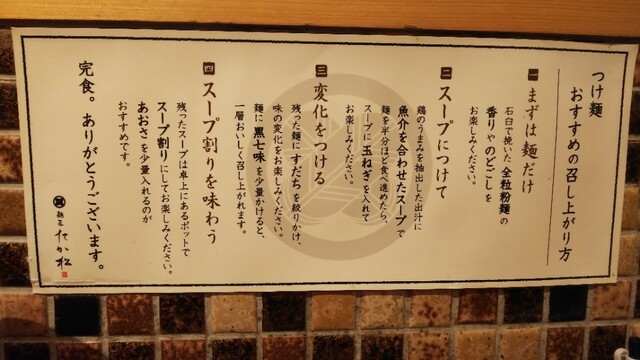 つけ麺
おすすめの召し上がり方
一 まずは麺だけ
石臼で挽いた全粒粉麺の
香りやのどごしを
お楽しみください。
二 スープにつけて
鶏のうまみを抽出した出汁に
魚介を合わせたスープで
麺を半分ほど食べ進めたら、
スープに玉ねぎを入れて
お楽しみください。
三 変化をつける
残った麺にすだちを絞りかけ、
味の変化をお楽しみください。
麺に黒七味を少量かけると、
一層おいしく召し上がれます。
四 スープ割りを味わう
残ったスープは卓上にあるポットで
スープ割りにしてお楽しみください。
あおさを少量入れるのが
おすすめです。
完食。ありがとうございます。
麺屋 たか松